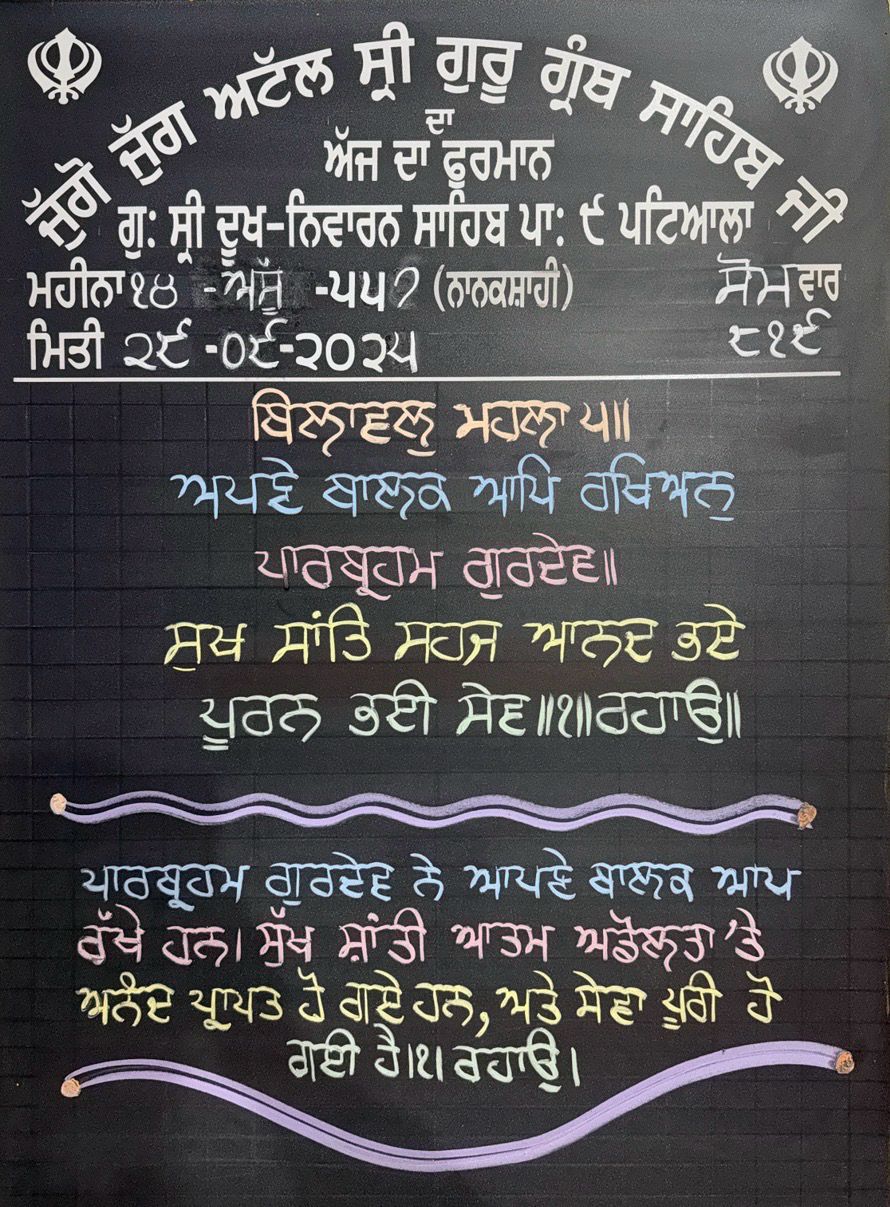 ਜੁੱਗੋ ਜੁੱਗ ਅਟੱਲ ਸ੍ਰੀ ਗੁਰੂ ਗ੍ਰੰਥ ਸਾਹਿਬ ਜੀ
ਦਾ
ਅੱਜ ਦਾ ਫੁਰਮਾਨ
ਗੁ: ਸ੍ਰੀ ਦੂਖ-ਨਿਵਾਰਨ ਸਾਹਿਬ ਪਾ: ੯ ਪਟਿਆਲਾ
ਮਹੀਨਾ ੧੪ -ਅਸੂੰ -੫੫੭ (ਨਾਨਕਸ਼ਾਹੀ) ਸੋਮਵਾਰ
ਮਿਤੀ ੨੯ -੦੯-੨੦੨੫ ੮੧੯
ਬਿਲਾਵਲੁ ਮਹਲਾ ੫॥
ਅਪਣੇ ਬਾਲਕ ਆਪਿ ਰਖਿਅਨੁ
ਪਾਰਬ੍ਰਹਮ ਗੁਰਦੇਵ॥
ਸੁਖ ਸਾਂਤਿ ਸਹਜ ਆਨਦ ਭਏ
ਪੂਰਨ ਭਈ ਸੇਵ॥੧॥ਰਹਾਉ॥
ਪਾਰਬ੍ਰਹਮ ਗੁਰਦੇਵ ਨੇ ਆਪਣੇ ਬਾਲਕ ਆਪ
ਰੱਖੇ ਹਨ। ਸੁੱਖ ਸ਼ਾਂਤੀ ਆਤਮ ਅਡੋਲਤਾ 'ਤੇ
ਅਨੰਦ ਪ੍ਰਾਪਤ ਹੋ ਗਏ ਹਨ, ਅਤੇ ਸੇਵਾ ਪੂਰੀ ਹੋ
ਗਈ ਹੈ।੧। ਰਹਾਉ।